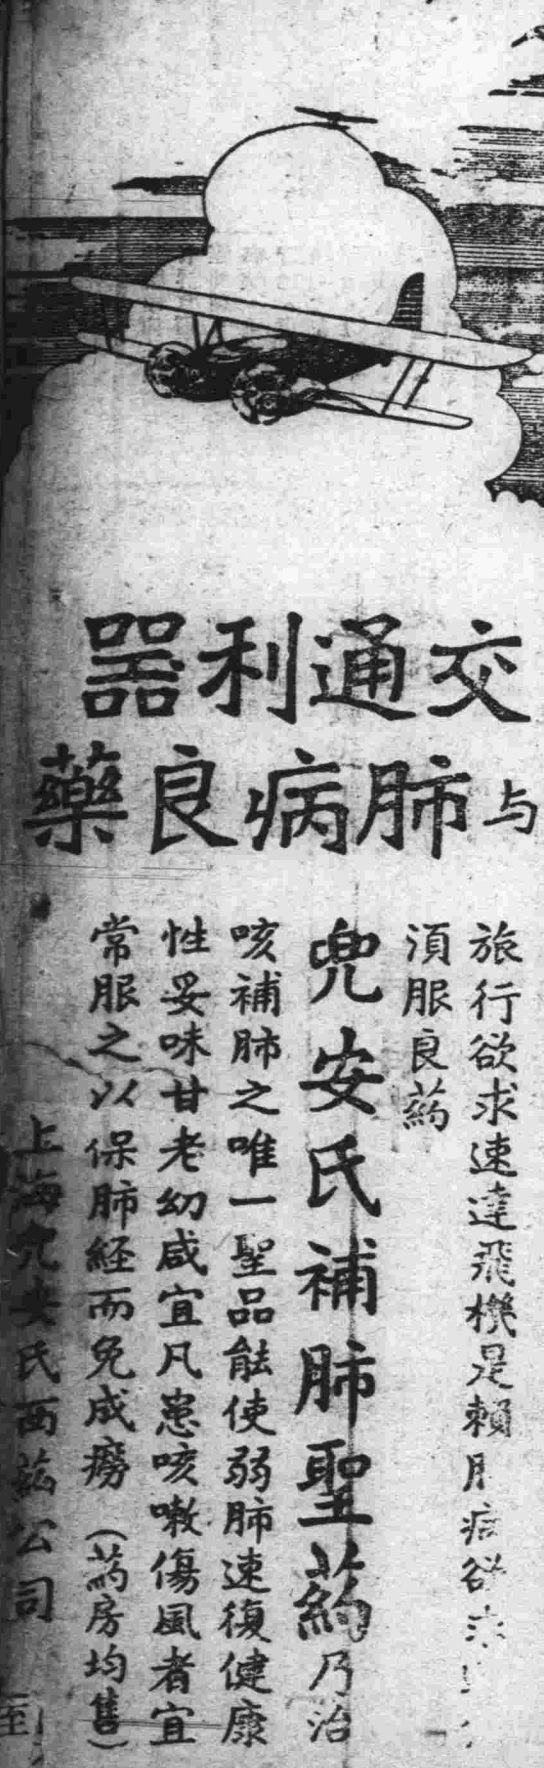 交通利器
与肺病良藥
旅行欲求速達飛機是賴肺病欲求
湏服良葯
兜安氏補肺聖葯乃治
咳補肺之唯一聖品能使弱肺速復健康
性妥味甘老幼咸宜凡患咳嗽傷風者宜
常服之以保肺経而免成癆(葯房均售)
上海兜安氏西葯公司